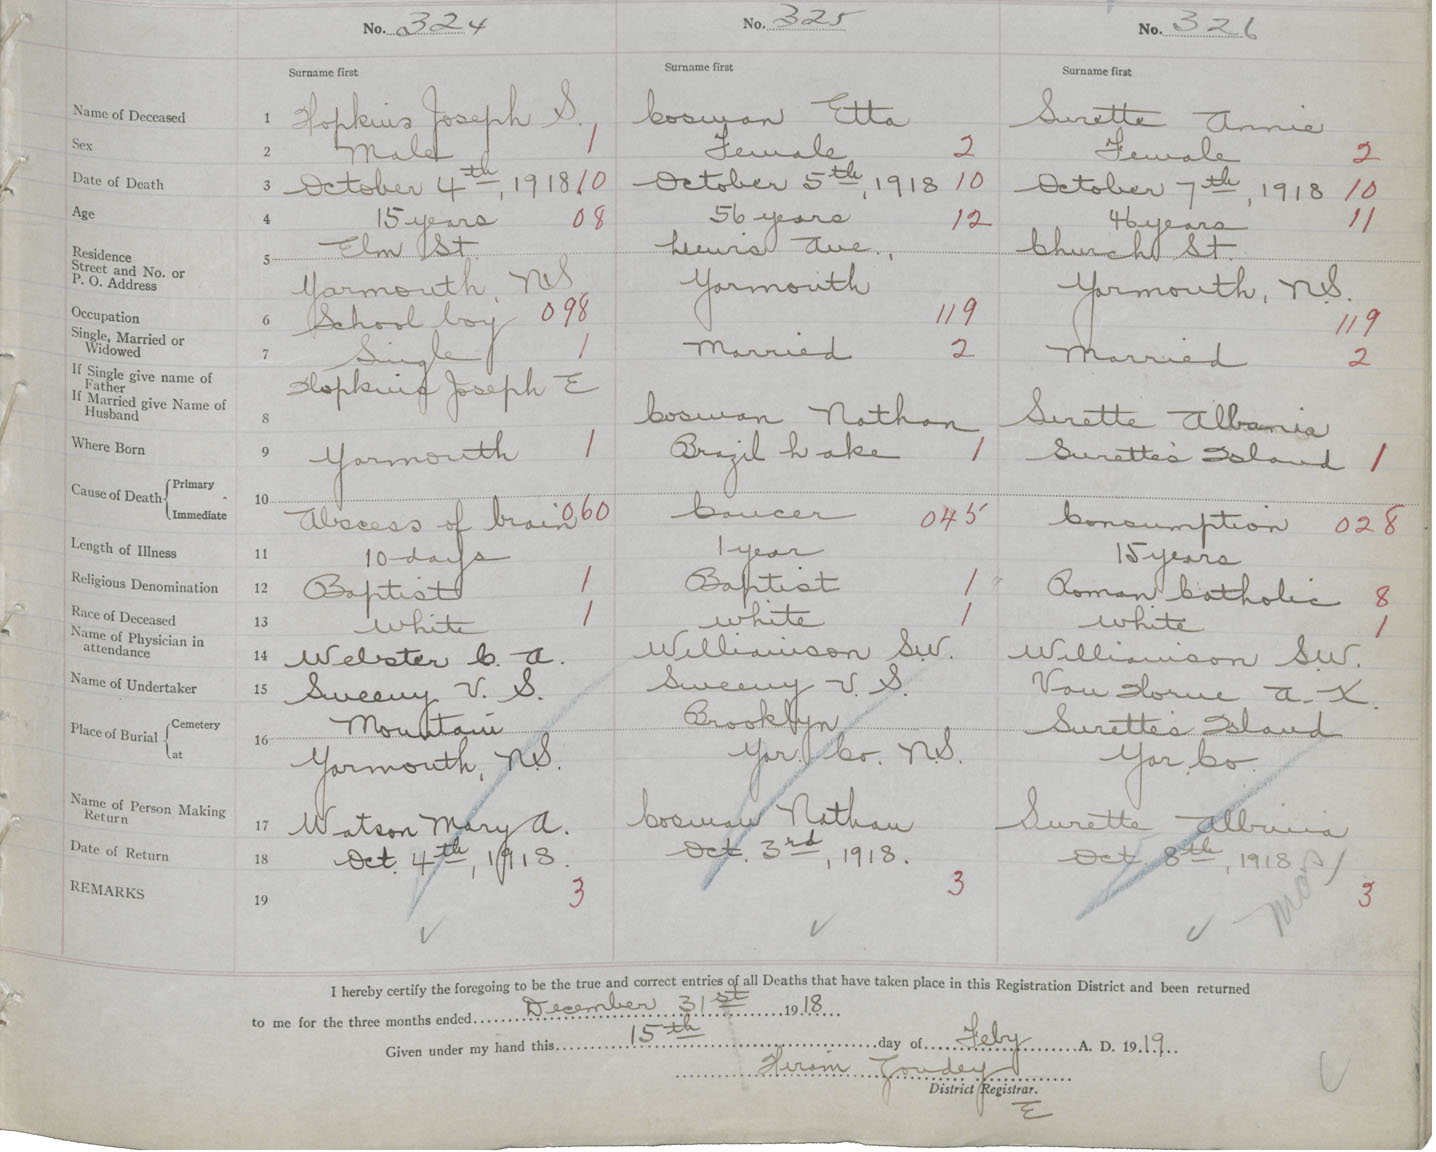 No. 324 No. 325 No. 326
Surname first Surname first Surname first
Name of Deceased 1 Hopkins Joseph S. Cosman Etta Surette Annie
Sex 2 Male 1 Female 2 Female 2
Date of Death 3 October 4th, 1918 10 October 5th, 1918 10 October 7th, 1918 10
Age 4 15 years 08 56 years 12 46 years 11
Residence Elm St. Lewis Ave., Church St.
Street and No. or 5
P. O. Address Yarmouth, N.S. Yarmouth Yarmouth, N.S.
Occupation 6 School boy 098 119 119
Single, Married or
Widowed 7 Single 1 Married 2 Married 2
If Single give name of
Father Hopkins Joseph E
If Married give Name of
Husband 8 Cosman Nathan Surette Albania
Where Born 9 Yarmouth 1 Brazil Lake 1 Surette's Island 1
Cause of Death Primary 10
Immediate Abscess of brain 060 Cancer 045 Consumption 028
Length of Illness 11 10 days 1 year 15 years
Religious Denomination 12 Baptist 1 Baptist 1 Roman Catholic 8
Race of Deceased 13 White 1 White 1 White 1
Name of Physician in
attendance 14 Webster C. A. Williamson S.W. Williamson S.W.
Name of Undertaker 15 Sweeny V. S. Sweeny V. S. Van Horne A. K.
Place of Burial Cemetery 16 Mountain Brooklyn Surette's Island
at Yarmouth, N.S. Yar. Co. N.S. Yar. Co.
Name of Person Making
Return 17 Watson Mary A. Cosman Nathan Surette
Date of Return 18 Oct. 4th, 1918. Oct. 3rd, 1918. Oct 8th, 1918
REMARKS 19 3 3 3
I hereby certify the foregoing to be the true and correct entries of all Deaths that have taken place in this Registration District and been returned
to me for the three months ended December 31st 1918
Given under my hand this 15th day of Feby A. D. 1919
Hiram Goudey
District Registrar.
E